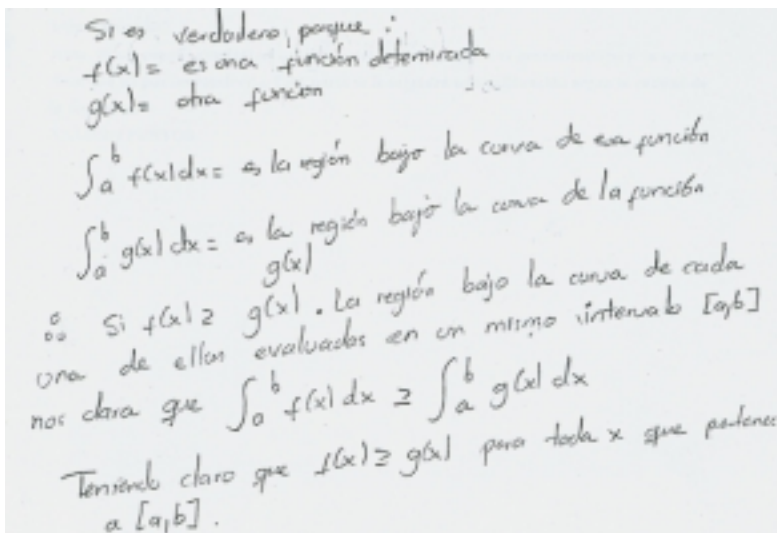 Si es verdadero, porque:
f(x) = es una función determinada
g(x) = otra función
∫_a^b f(x) dx = es la región bajo la curva de esa función
∫_a^b g(x) dx = es la región bajo la curva de la función
g(x)
∴ Si f(x) ≥ g(x). La región bajo la curva de cada
una de ellas evaluadas en un mismo intervalo [a,b]
nos dara que ∫_a^b f(x) dx ≥ ∫_a^b g(x) dx
Teniendo claro que f(x) ≥ g(x) para toda x que pertenece
a [a,b].